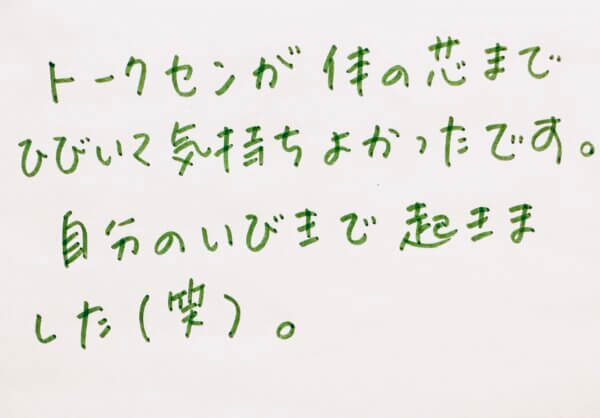 トークセンが体の芯まで
ひびいて気持ちよかったです。
自分のいびきで起きま
した(笑)。